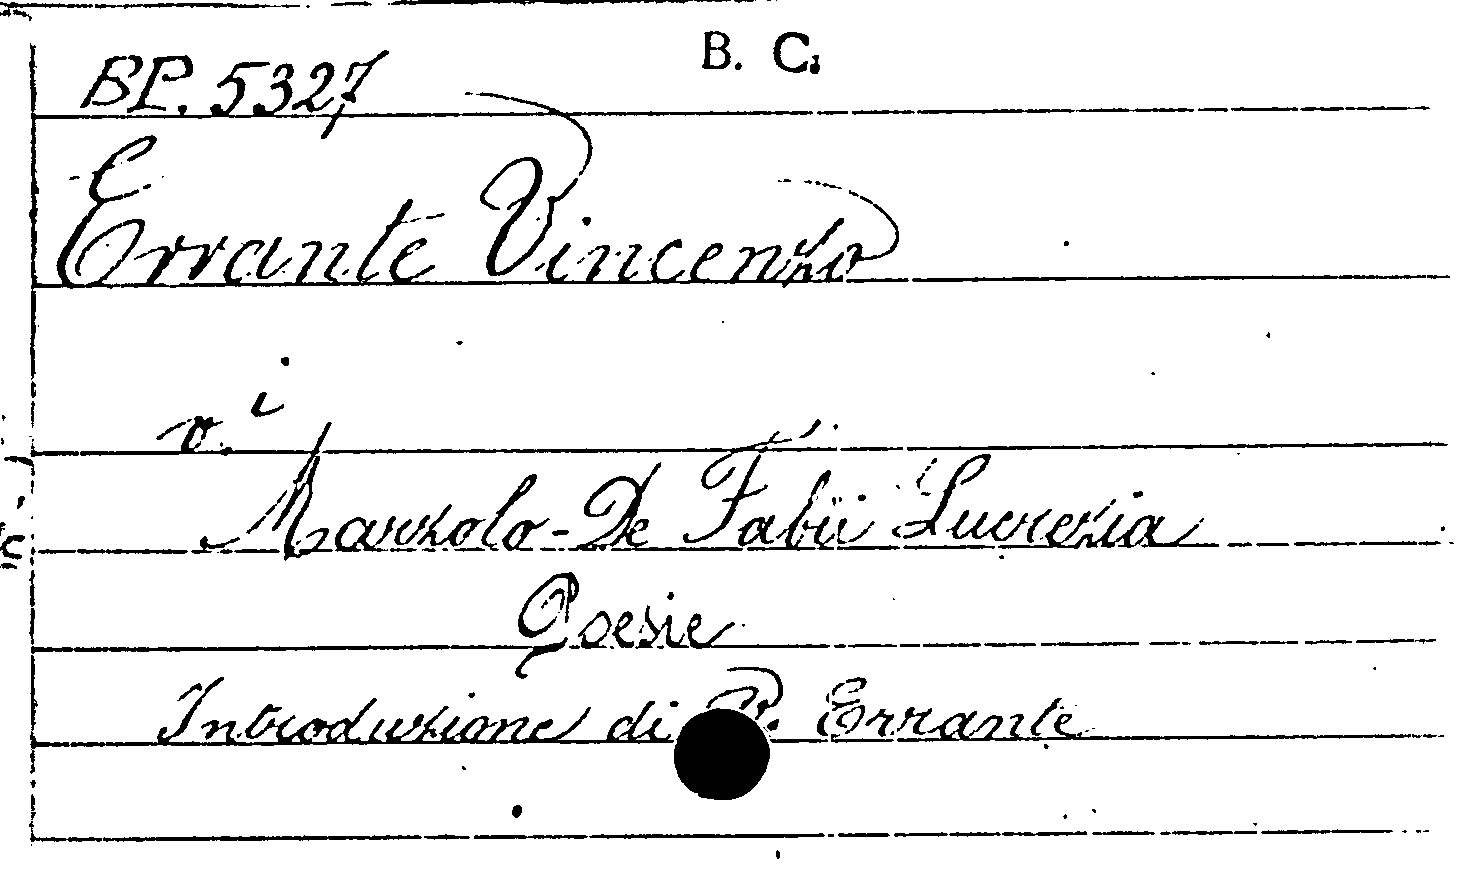 B. C.
BP. 5327
Errante Vincenzo
v. i
Marzolo-De Fabii Lucrezia
Poesie
Introduzione di V. Errante